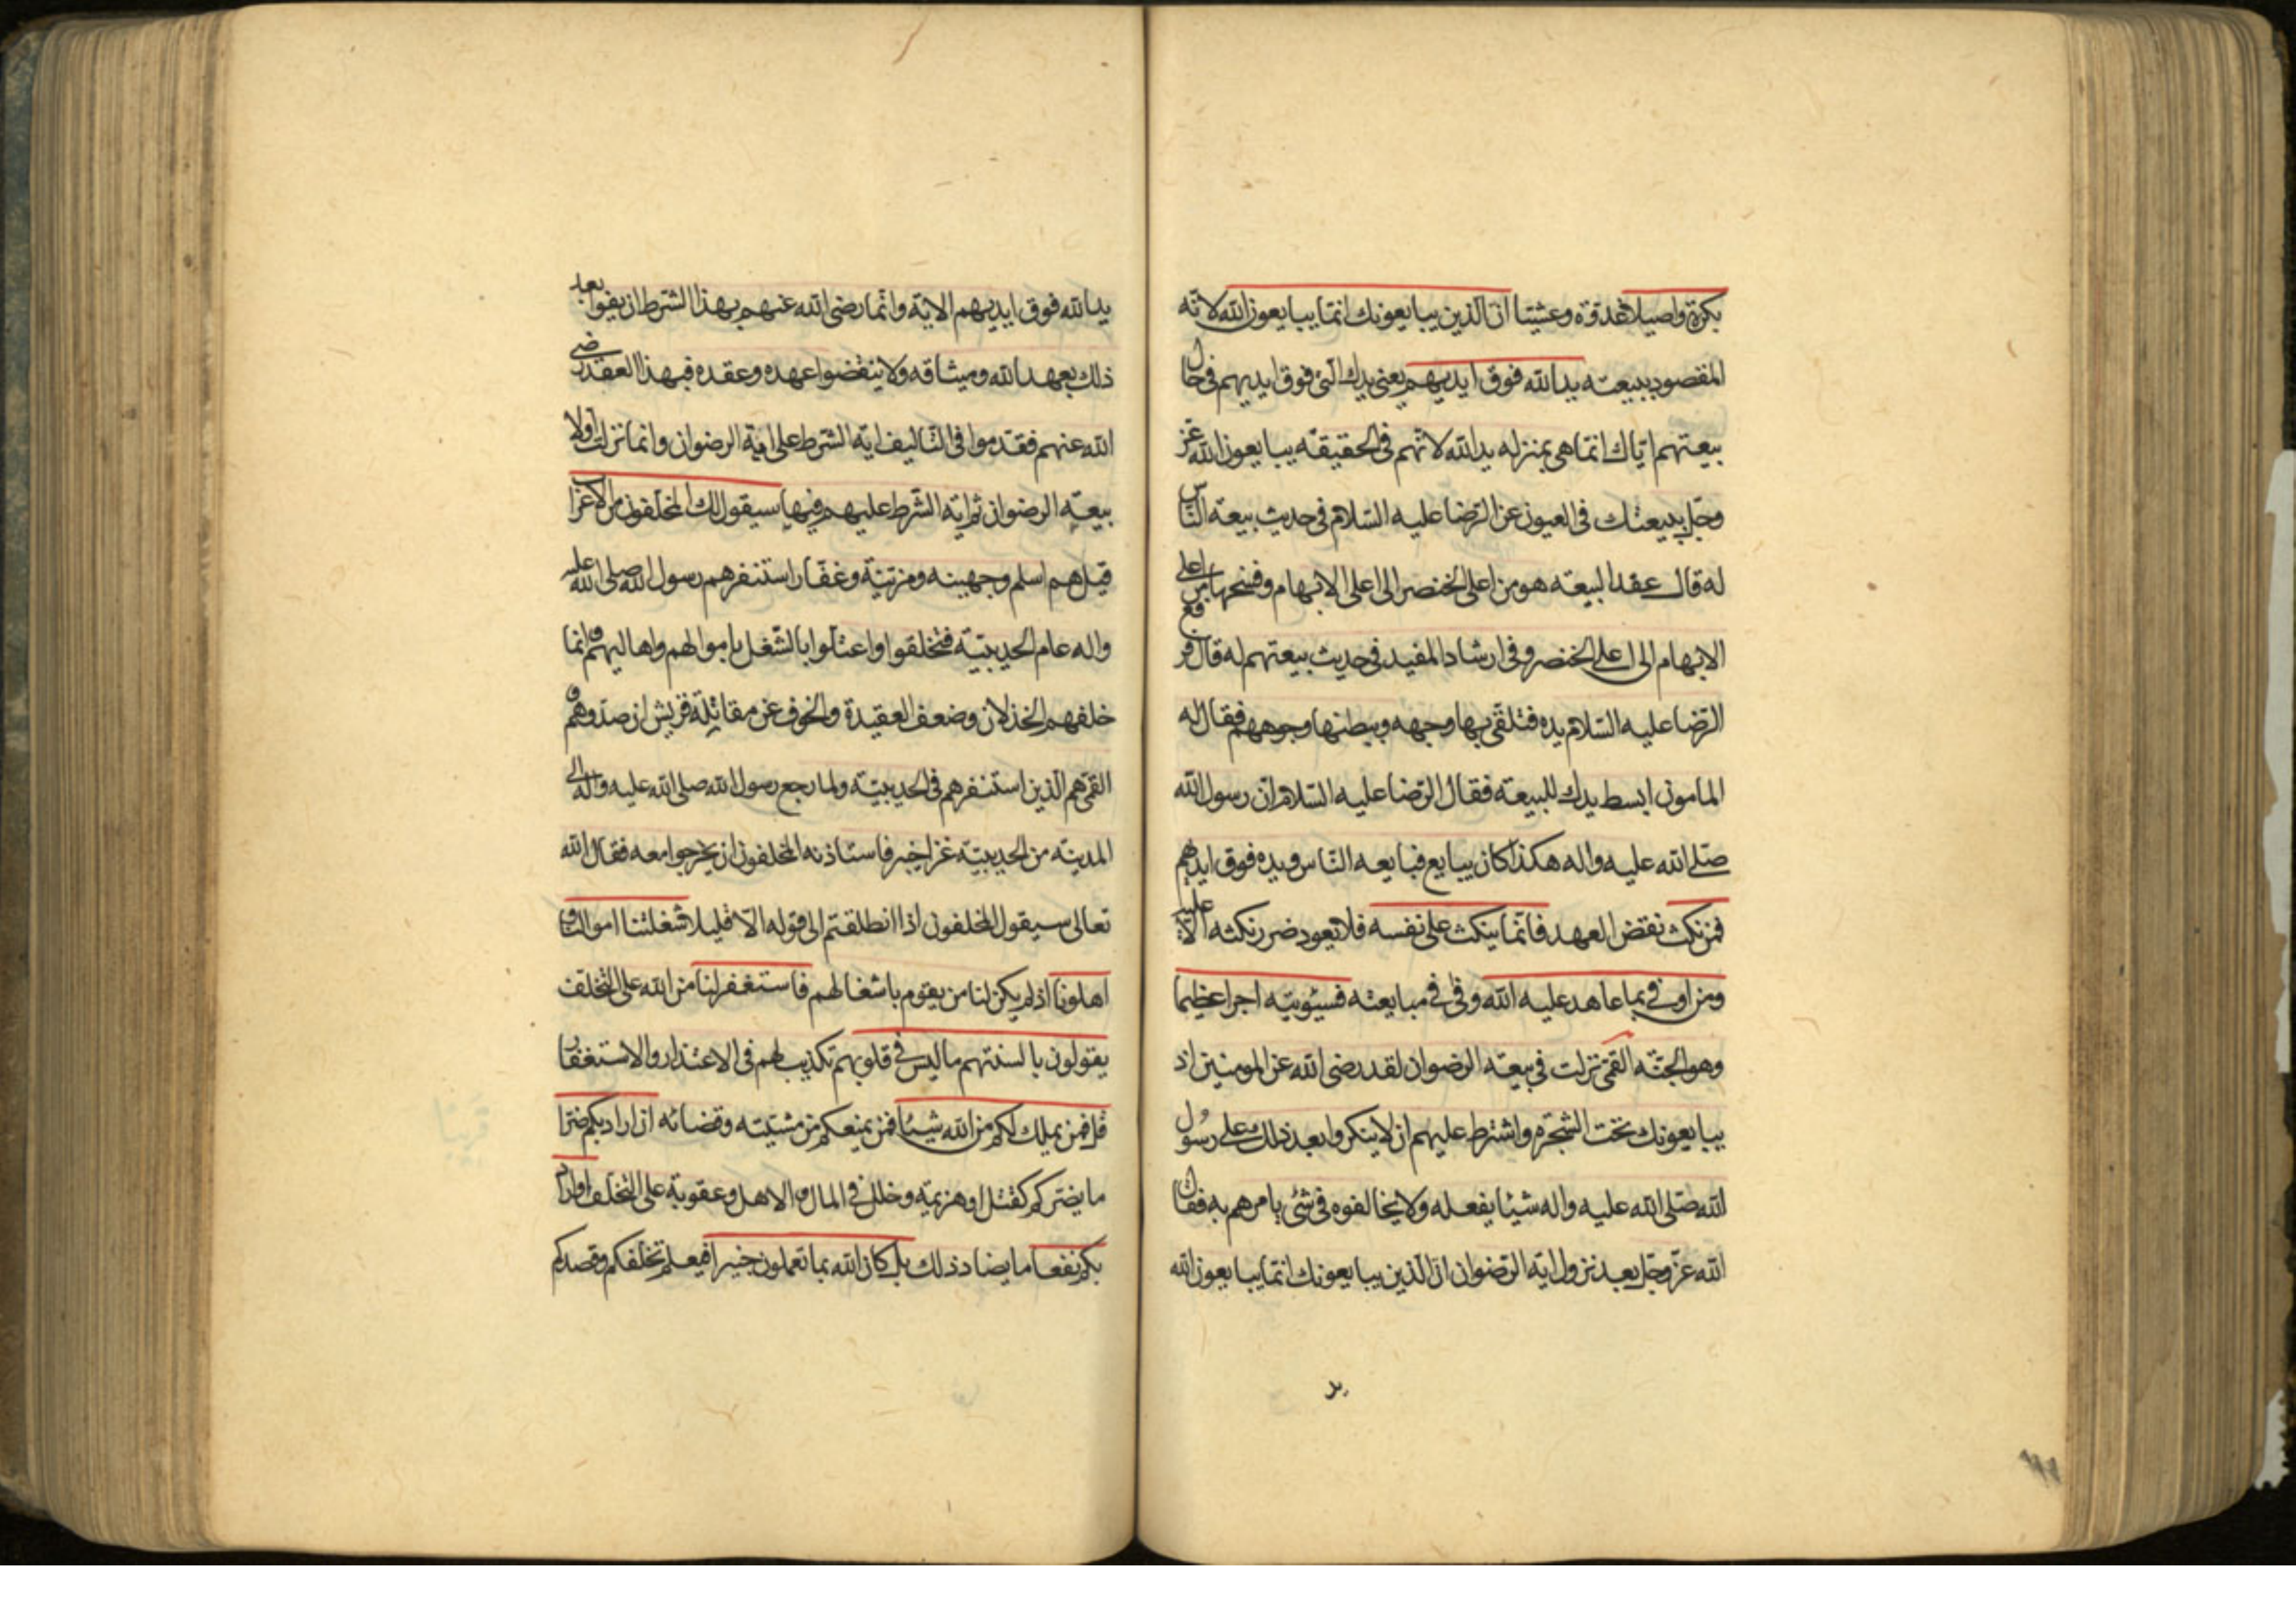 بكرة واصيلا غدوة وعشيّا انّ الّذين يبايعونك انّما يبايعون الله لانّه
المقصود ببيعته يد الله فوق ايديهم يعني يدك الّتي فوق ايديهم في حال
بيعتهم ايّاك انّما هي بمنزله يد الله لانّهم في الحقيقه يبايعون الله عزّ
وجلّ ببيعتك في العيون عن الرّضا عليه السّلام في حديث بيعة النّاس
له قال عقد البيعه هو من اعلى الخنصر الى اعلى الابهام وفسخها من اعلى
الابهام الى اعلى الخنصر وفي ارشاد المفيد في حديث بيعتهم له قال فرفع
الرّضا عليه السّلام يده فتلقّى بها وجهه وببطنها وجوههم فقال له
المامون ابسط يدك للبيعة فقال الرّضا عليه السّلام انّ رسول الله
صلّى الله عليه واله هكذا كان يبايع فبايعه النّاس ويده فوق ايديهم
فمن نكث نقض العهد فانّما ينكث على نفسه فلا يعود ضرر نكثه الّا عليه
ومن اوفى بما عاهد عليه الله وفى في مبايعته فسيؤتيه اجرا عظيما
وهو الجنّه القمّي نزلت في بيعة الرضوان لقد رضى الله عن المومنين اذ
يبايعونك تحت الشّجرة واشترط عليهم ان لا ينكروا بعد ذلك على رسول
الله صلّى الله عليه واله شيئا يفعله ولا يخالفوه في شئ يامرهم به فقال
الله عزّ وجلّ بعد نزول اية الرّضوان انّ الّذين يبايعونك انّما يبايعون الله
يد
يد الله فوق ايديهم الاية وانّما رضى الله عنهم بهذا الشرط ان يفوا بعد
ذلك بعهد الله وميثاقه ولا ينقضوا عهده وعقده فبهذا العقد رضي
الله عنهم فقدّموا في التّاليف اية الشرط على اية الرضوان وانما نزلت اولا
بيعة الرضوان ثم اية الشّرط عليهم فيها سيقول لك المخلّفون من الاعراب
قيل هم اسلم وجهينه ومزنيّة وغفّار استنفرهم رسول الله صلى الله عليه
واله عام الحديبيّة فتخلّفوا واعتلّوا بالشّغل باموالهم واهاليهم وانما
خلفهم الخذلان وضعف العقيدة والخوف عن مقاتلة قريش ان صدّوهم و
القمّي هم الّذين استنفرهم في الحديبيّة ولما رجع رسول الله صلى الله عليه واله الى
المدينه من الحديبيّة غزا خيبر فاستاذنه المخلفون ان يخرجوا معه فقال الله
تعالى سيقول المخلفون اذا انطلقتم الى قوله الّا قليلا شغلتنا اموالنا و
اهلونا اذ لم يكن لنا من يقوم باشغالهم فاستغفر لنا من الله على التخلّف
يقولون بالسنتهم ما ليس في قلوبهم تكذيب لهم في الاعتذار والاستغفار
قل فمن يملك لكم من الله شيئا فمن يمنعكم من مشيّته وقضائه ان اراد بكم ضرّا
ما يضرّكم كقتل او هزيمة وخلل في المال والاهل وعقوبة على التّخلّف او اراد
بكم نفعا ما يضادّ ذلك بل كان الله بما تعملون خبيرا فيعلم تخلّفكم وقصدكم